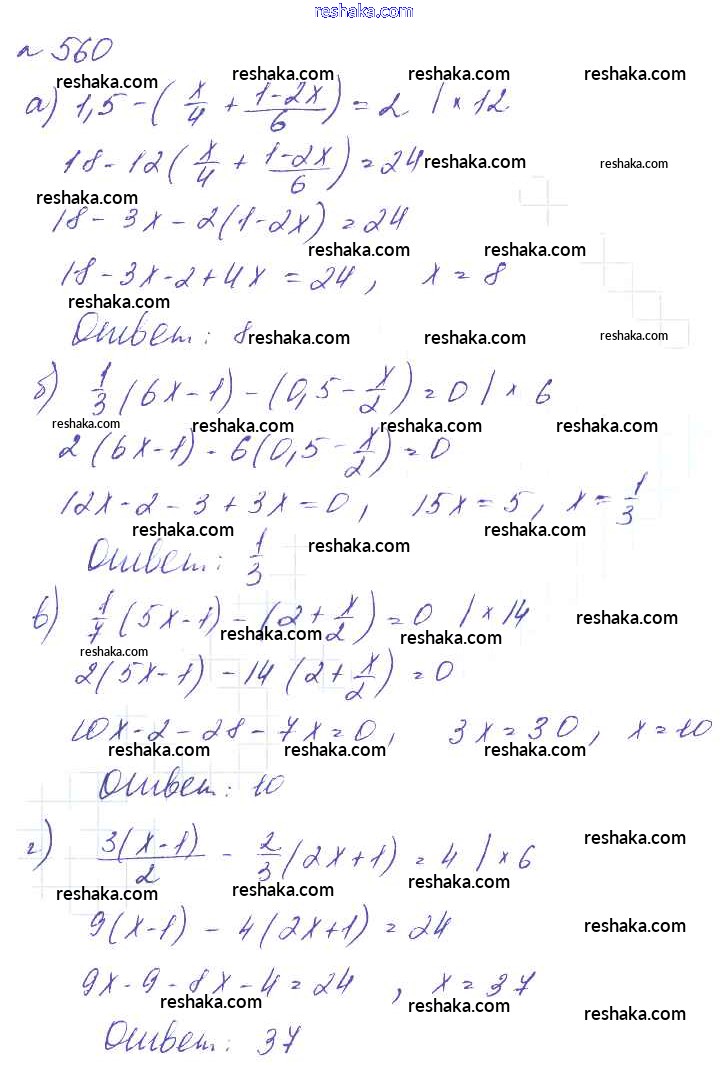 reshaka.com
№ 560
reshaka.com reshaka.com reshaka.com reshaka.com
а) 1,5 - ( x/4 + (1-2x)/6 ) = 2 | × 12
18 - 12 ( x/4 + (1-2x)/6 ) = 24
reshaka.com reshaka.com
reshaka.com
18 - 3x - 2(1-2x) = 24
reshaka.com reshaka.com
18 - 3x - 2 + 4x = 24, x = 8
reshaka.com
Ответ: 8
reshaka.com reshaka.com reshaka.com
б) 1/3 (6x-1) - (0,5 - x/2) = 0 | × 6
reshaka.com reshaka.com reshaka.com reshaka.com
2(6x-1) - 6(0,5 - x/2) = 0
12x - 2 - 3 + 3x = 0, 15x = 5, x = 1/3
reshaka.com reshaka.com
Ответ: 1/3
reshaka.com
в) 1/7 (5x-1) - (2 + x/2) = 0 | × 14
reshaka.com reshaka.com reshaka.com
reshaka.com
2(5x-1) - 14(2 + x/2) = 0
10x - 2 - 28 - 7x = 0, 3x = 30, x = 10
reshaka.com reshaka.com reshaka.com
Ответ: 10
г) 3(x-1)/2 - 2/3 (2x+1) = 4 | × 6
reshaka.com
reshaka.com reshaka.com reshaka.com
9(x-1) - 4(2x+1) = 24
reshaka.com
9x - 9 - 8x - 4 = 24, x = 37
reshaka.com reshaka.com reshaka.com
Ответ: 37